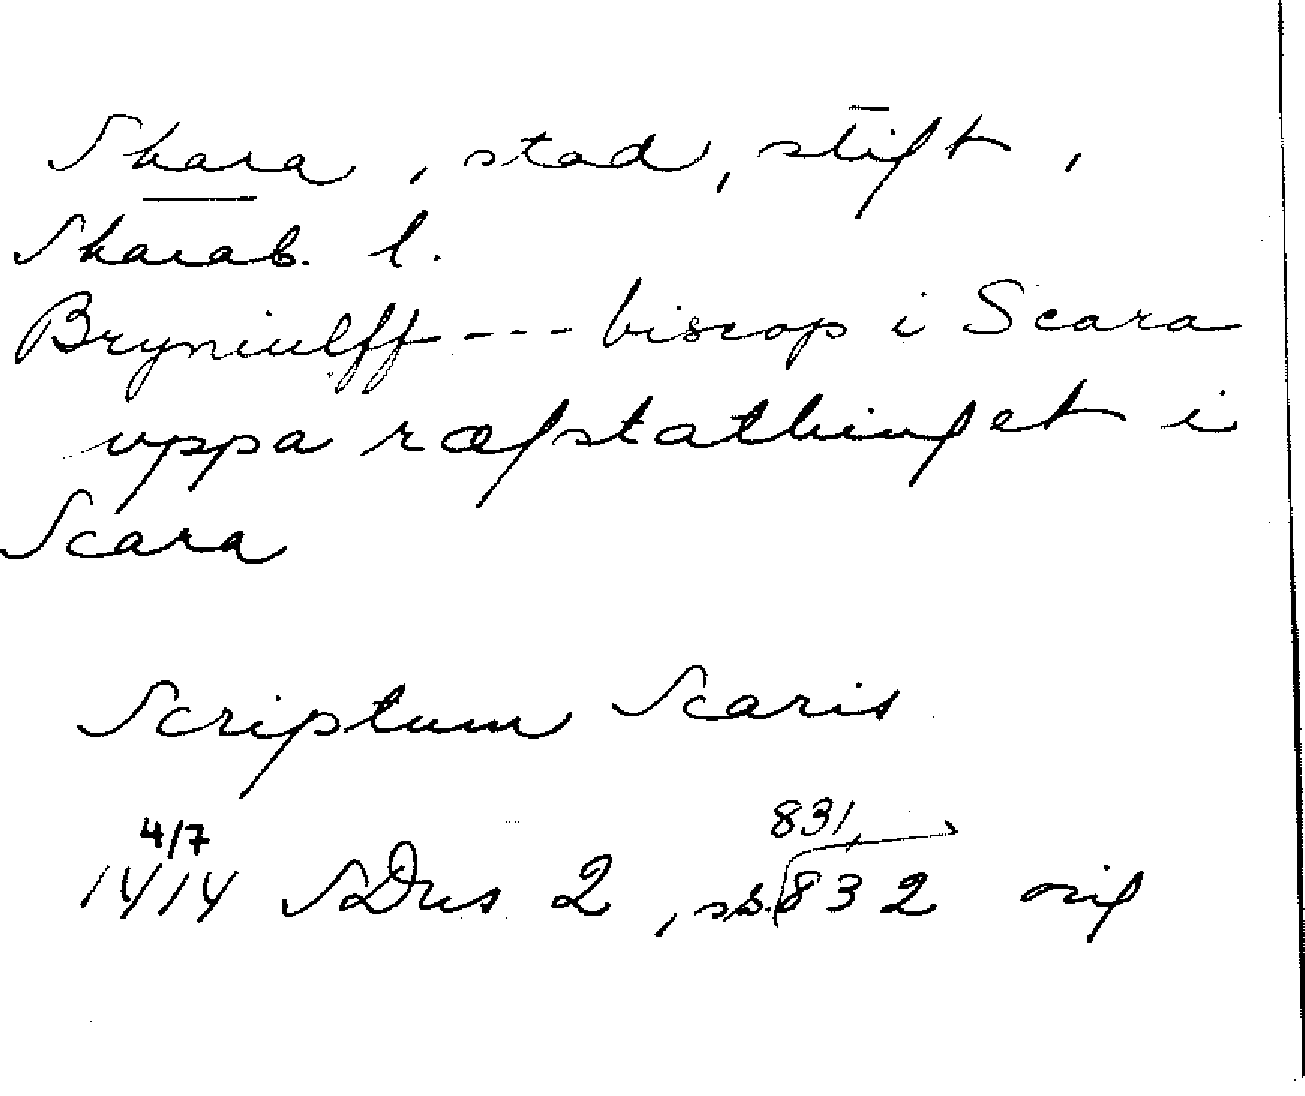 Skara, stad, stift,
Skarab. l.
Bryniulff --- biscop i Scara
uppa ræfstathinget i
Scara
Scriptum Scaris
4/7
831,
1414 SDns 2, ss. 832 orig